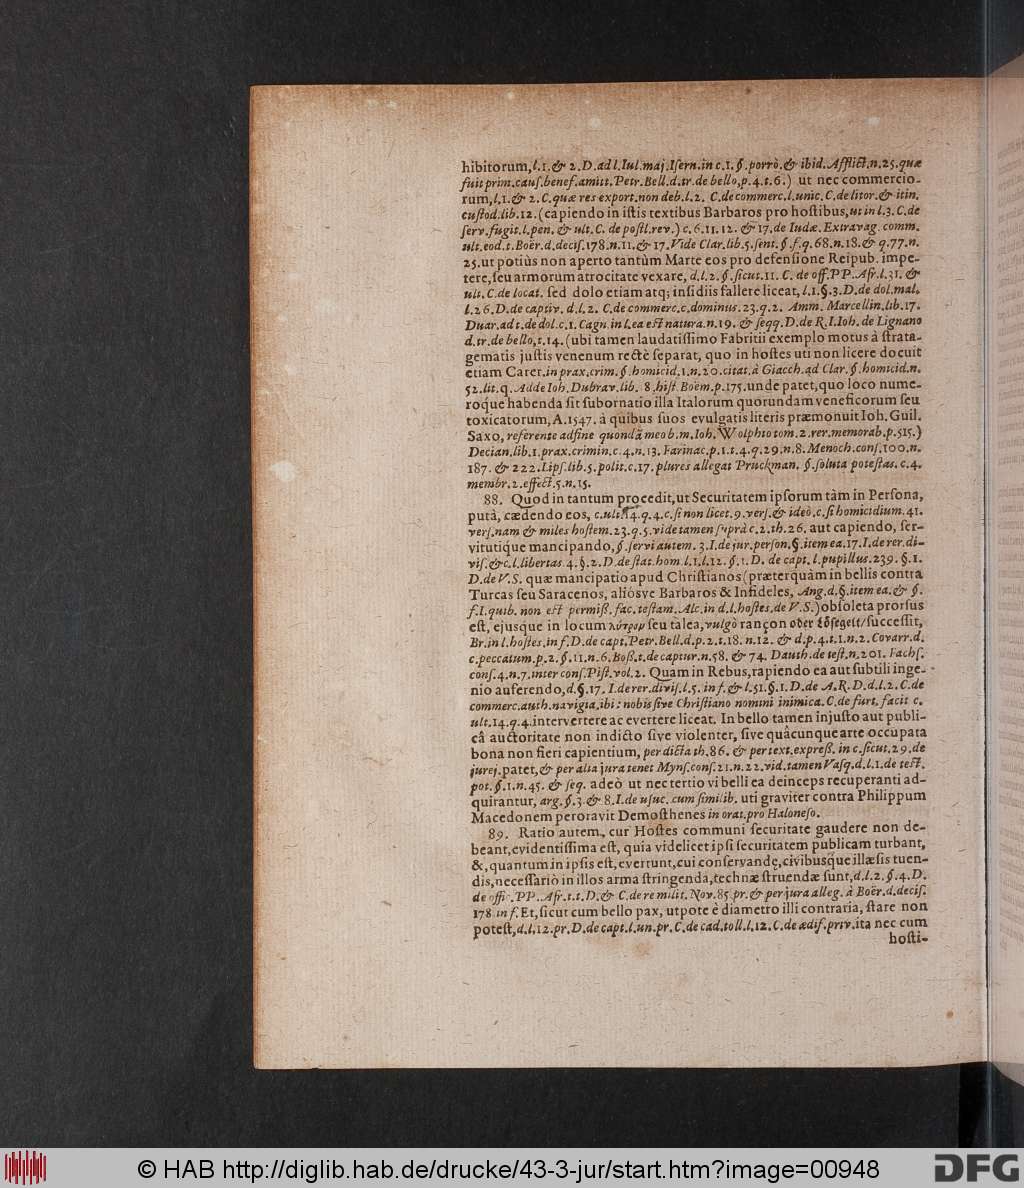 hibitorum, l.1. & 2. D. ad l. Iul. maj. Isern. in c. 1. §. porrò. & ibid. Afflict. n. 25. quæ
fuit prim. caus. benef. amitt. Petr. Bell. d. tr. de bello, p. 4. t. 6.) ut nec commercio-
rum, l. 1. & 2. C. quæ res export. non deb. l. 2. C. de commerc. l. unic. C. de litor. & itin.
custod. lib. 12. (capiendo in istis textibus Barbaros pro hostibus, ut in l. 3. C. de
serv. fugit. l. pen. & ult. C. de postl. rev.) c. 6. 11. 12. & 17. de Iudæ. Extravag. comm.
ult. eod. t. Boër. d. decis. 178. n. 11. & 17. Vide Clar. lib. 5. sent. §. f. q. 68. n. 18. & q. 77. n.
25. ut potiùs non aperto tantùm Marte eos pro defensione Reipub. impe-
tere, seu armorum atrocitate vexare, d. l. 2. §. sicut. 11. C. de off. PP. Afr. l. 31. &
ult. C. de locat. sed dolo etiam atq; insidiis fallere liceat, l. 1. §. 3. D. de dol. mal.
l. 26. D. de captiv. d. l. 2. C. de commerc. c. dominus. 23. q. 2. Amm. Marcellin. lib. 17.
Duar. ad t. de dol. c. 1. Cagn. in l. ea est natura. n. 19. & seqq. D. de R. I. Ioh. de Lignano
d. tr. de bello, t. 14. (ubi tamen laudatissimo Fabritii exemplo motus à strata-
gematis justis venenum rectè separat, quo in hostes uti non licere docuit
etiam Carer. in prax. crim. §. homicid. 1. n. 20. citat. à Giacch. ad Clar. §. homicid. n.
52. lit. q. Adde Ioh. Dubrav. lib. 8. hist. Boëm. p. 175. unde patet, quo loco nume-
roque habenda sit subornatio illa Italorum quorundam veneficorum seu
toxicatorum, A. 1547. à quibus suos evulgatis literis præmonuit Ioh. Guil.
Saxo, referente adfine quondā meo b. m. Ioh. Wolphio tom. 2. rer. memorab. p. 515.)
Decian. lib. 1. prax. crimin. c. 4. n. 13. Farinac. p. 1. t. 4. q. 29. n. 8. Menoch. cons. 100. n.
187. & 222. Lips. lib. 5. polit. c. 17. plures allegat Pruckman. §. soluta potestas. c. 4.
membr. 2. effect. 5. n. 15.
88. Quod in tantum procedit, ut Securitatem ipsorum tàm in Persona,
putà, cædendo eos, c. ult. 14. q. 4. c. si non licet. 9. vers. & ideò. c. si homicidium. 41.
vers. nam & miles hostem. 23. q. 5. vide tamen suprà c. 2. th. 26. aut capiendo, ser-
vitutique mancipando, §. servi autem. 3. I. de jur. person. §. item ea. 17. I. de rer. di-
vis. & c. l. libertas. 4. §. 2. D. de stat. hom. l. 1. l. 12. §. 1. D. de capt. l. pupillus. 239. §. 1.
D. de V. S. quæ mancipatio apud Christianos (præterquàm in bellis contra
Turcas seu Saracenos, aliosve Barbaros & Infideles, Ang. d. §. item ea. & §.
f. I. quib. non est permiss. fac. testam. Alc. in d. l. hostes. de V. S.) obsoleta prorsus
est, ejusque in locum λύτρον seu talea, vulgò rançon oder Lösegelt/ successit,
Br. in l. hostes. in f. D. de capt. Petr. Bell. d. p. 2. t. 18. n. 12. & d. p. 4. t. 1. n. 2. Covarr. d.
c. peccatum. p. 2. §. 11. n. 6. Boss. t. de captur. n. 58. & 74. Dauth. de test. n. 201. Fachs.
cons. 4. n. 7. inter cons. Pist. vol. 2. Quam in Rebus, rapiendo ea aut subtili inge-
nio auferendo, d. §. 17. I. de rer. divis. l. 5. in f. & l. 51. §. 1. D. de A. R. D. d. l. 2. C. de
commerc. auth. navigia, ibi: nobis sive Christiano nomini inimica. C. de furt. facit c.
ult. 14. q. 4. intervertere ac evertere liceat. In bello tamen injusto aut publi-
câ auctoritate non indicto sive violenter, sive quâcunque arte occupata
bona non fieri capientium, per dicta th. 86. & per text. express. in c. sicut. 29. de
jurej. patet, & per alia jura tenet Myns. cons. 21. n. 22. vid. tamen Vasq. d. l. 1. de test.
pot. §. 1. n. 45. & seq. adeò ut nec tertio vi belli ea deinceps recuperanti ad-
quirantur, arg. §. 3. & 8. I. de usuc. cum similib. uti graviter contra Philippum
Macedonem peroravit Demosthenes in orat. pro Haloneso.
89. Ratio autem, cur Hostes communi securitate gaudere non de-
beant, evidentissima est, quia videlicet ipsi securitatem publicam turbant,
&, quantum in ipsis est, evertunt, cui conservandę, civibusque illæsis tuen-
dis, necessariò in illos arma stringenda, technæ struendæ sunt, d. l. 2. §. 4. D.
de offic. PP. Afr. t. t. D. & C. de re milit. Nov. 85. pr. & per jura alleg. à Boër. d. decis.
178. in f. Et, sicut cum bello pax, utpote è diametro illi contraria, stare non
potest, d. l. 12. pr. D. de capt. l. un. pr. C. de cad. toll. l. 12. C. de ædif. priv. ita nec cum
hosti-
© HAB http://diglib.hab.de/drucke/43-3-jur/start.htm?image=00948
DFG